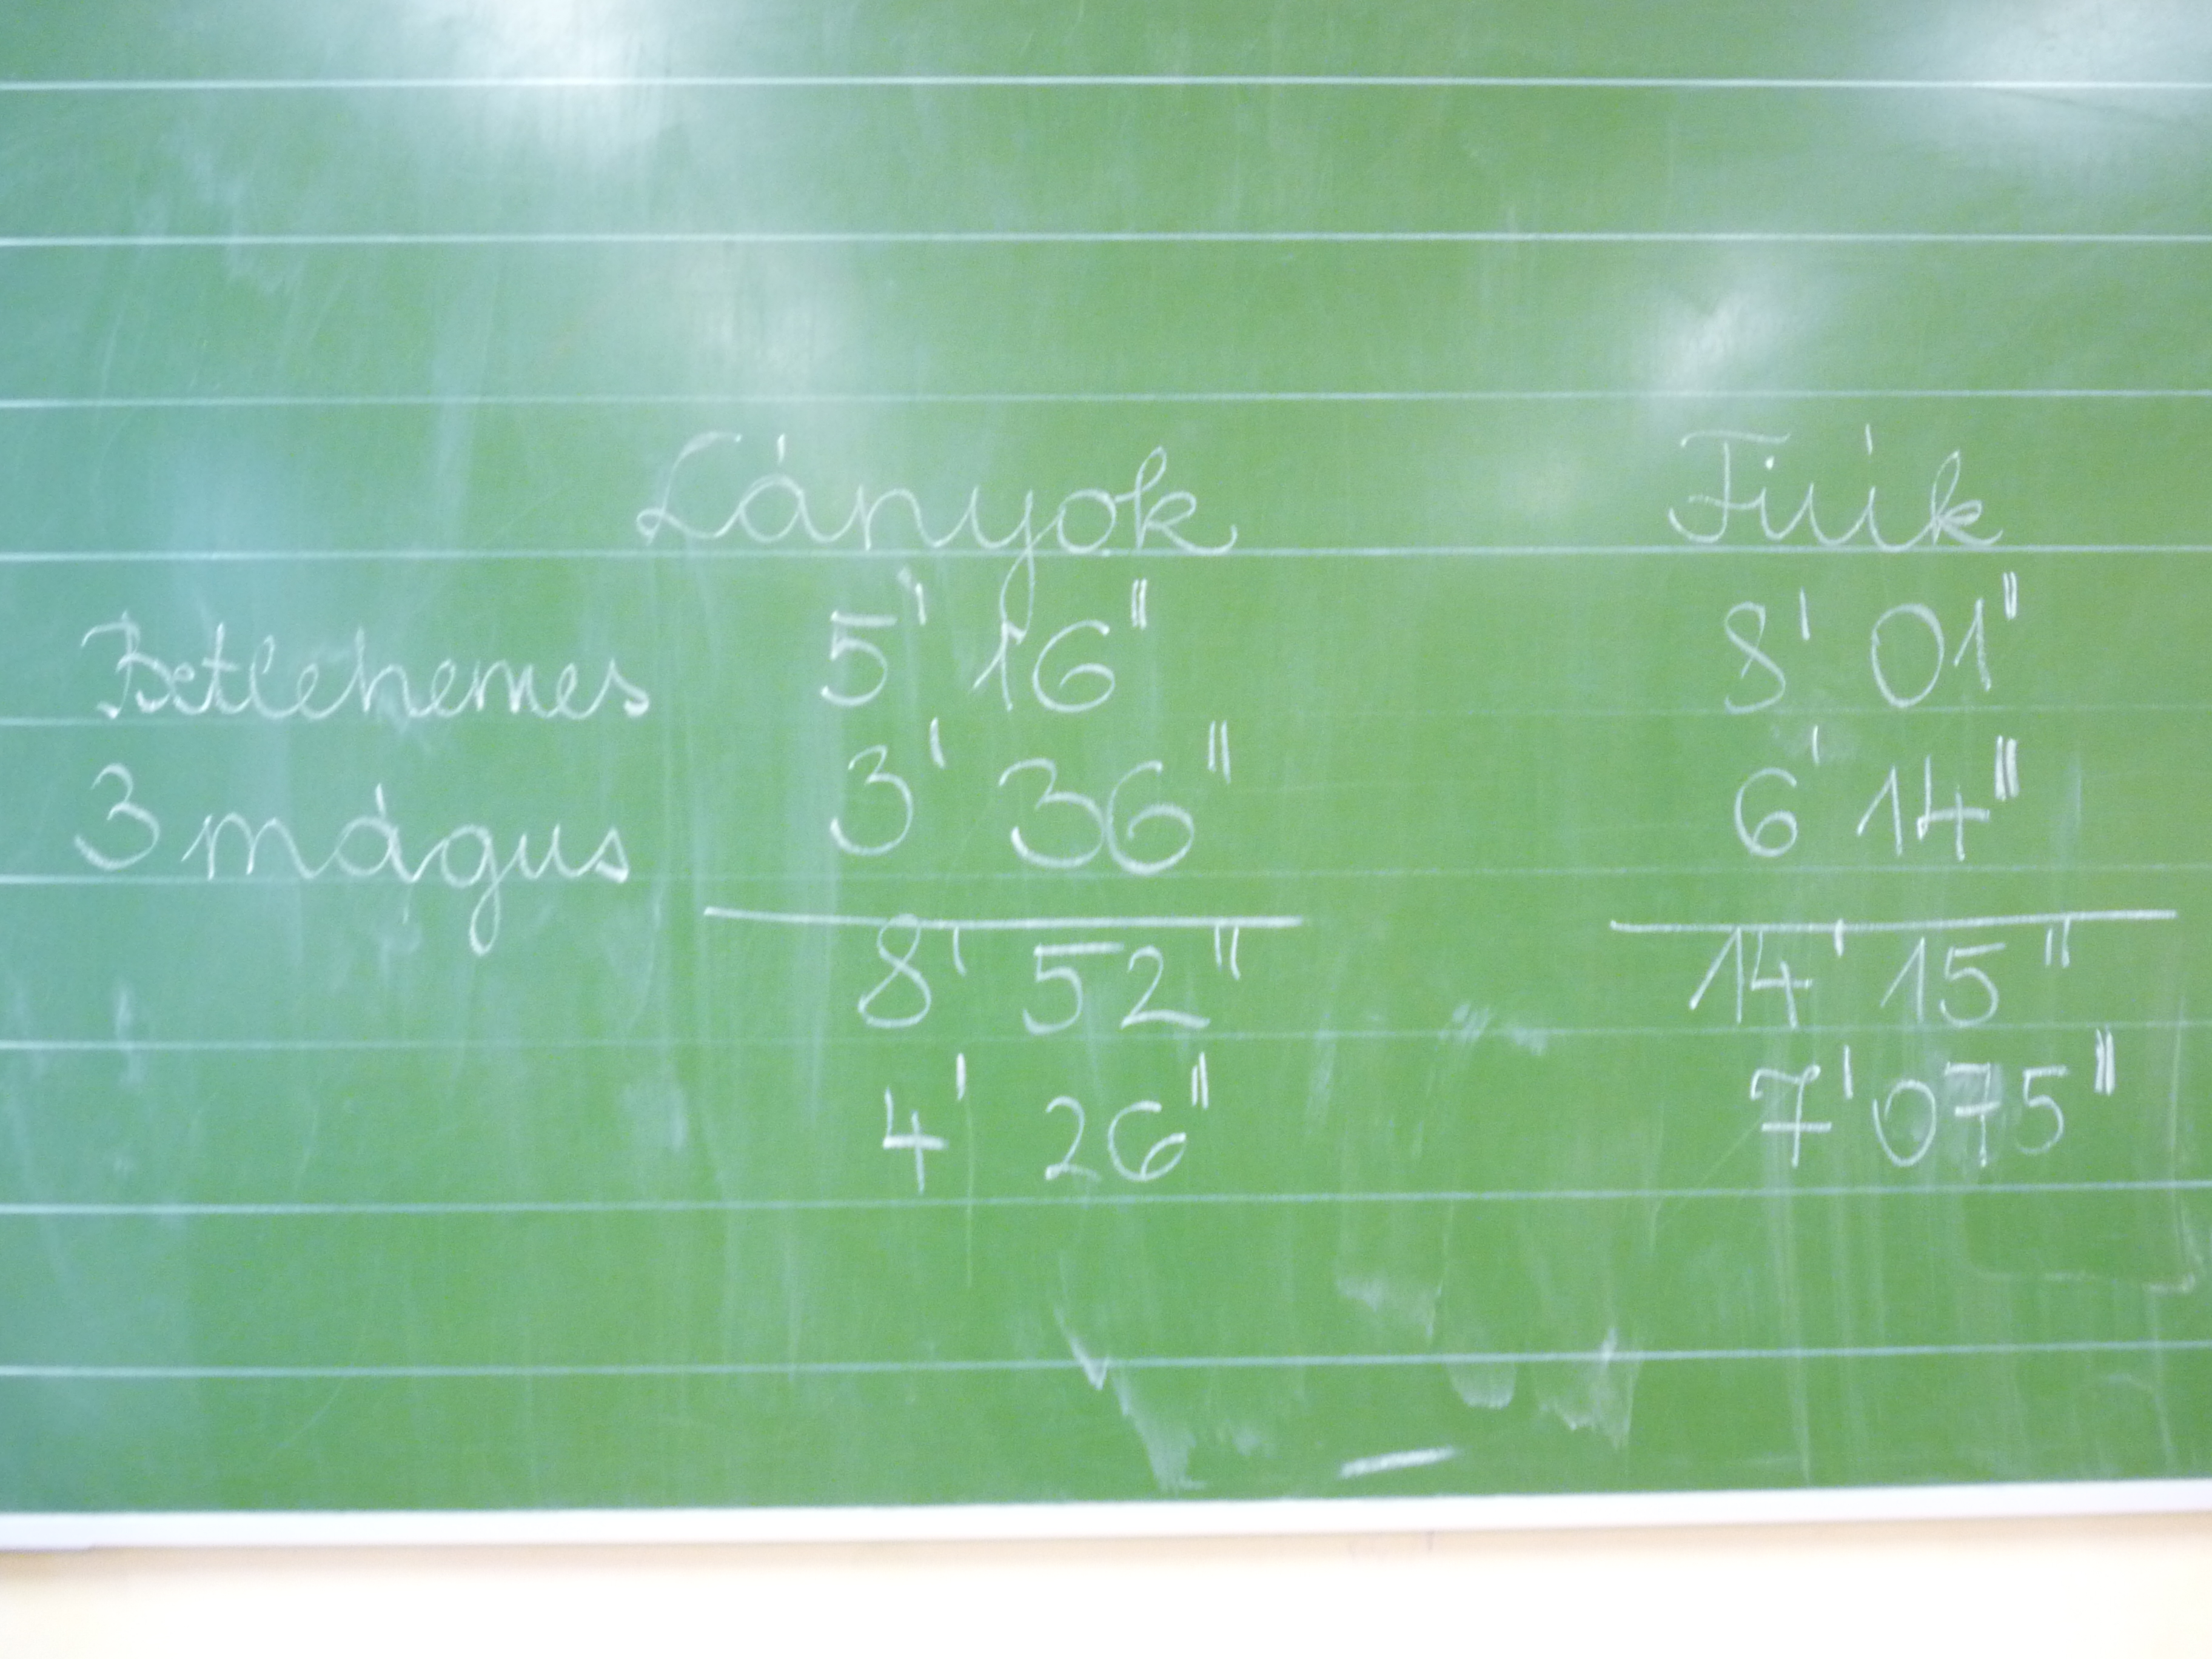 Lányok Fiúk
Betlehemes 5' 16" 8' 01"
3 mágus 3' 36" 6' 14"
8' 52" 14' 15"
4' 26" 7' 075"